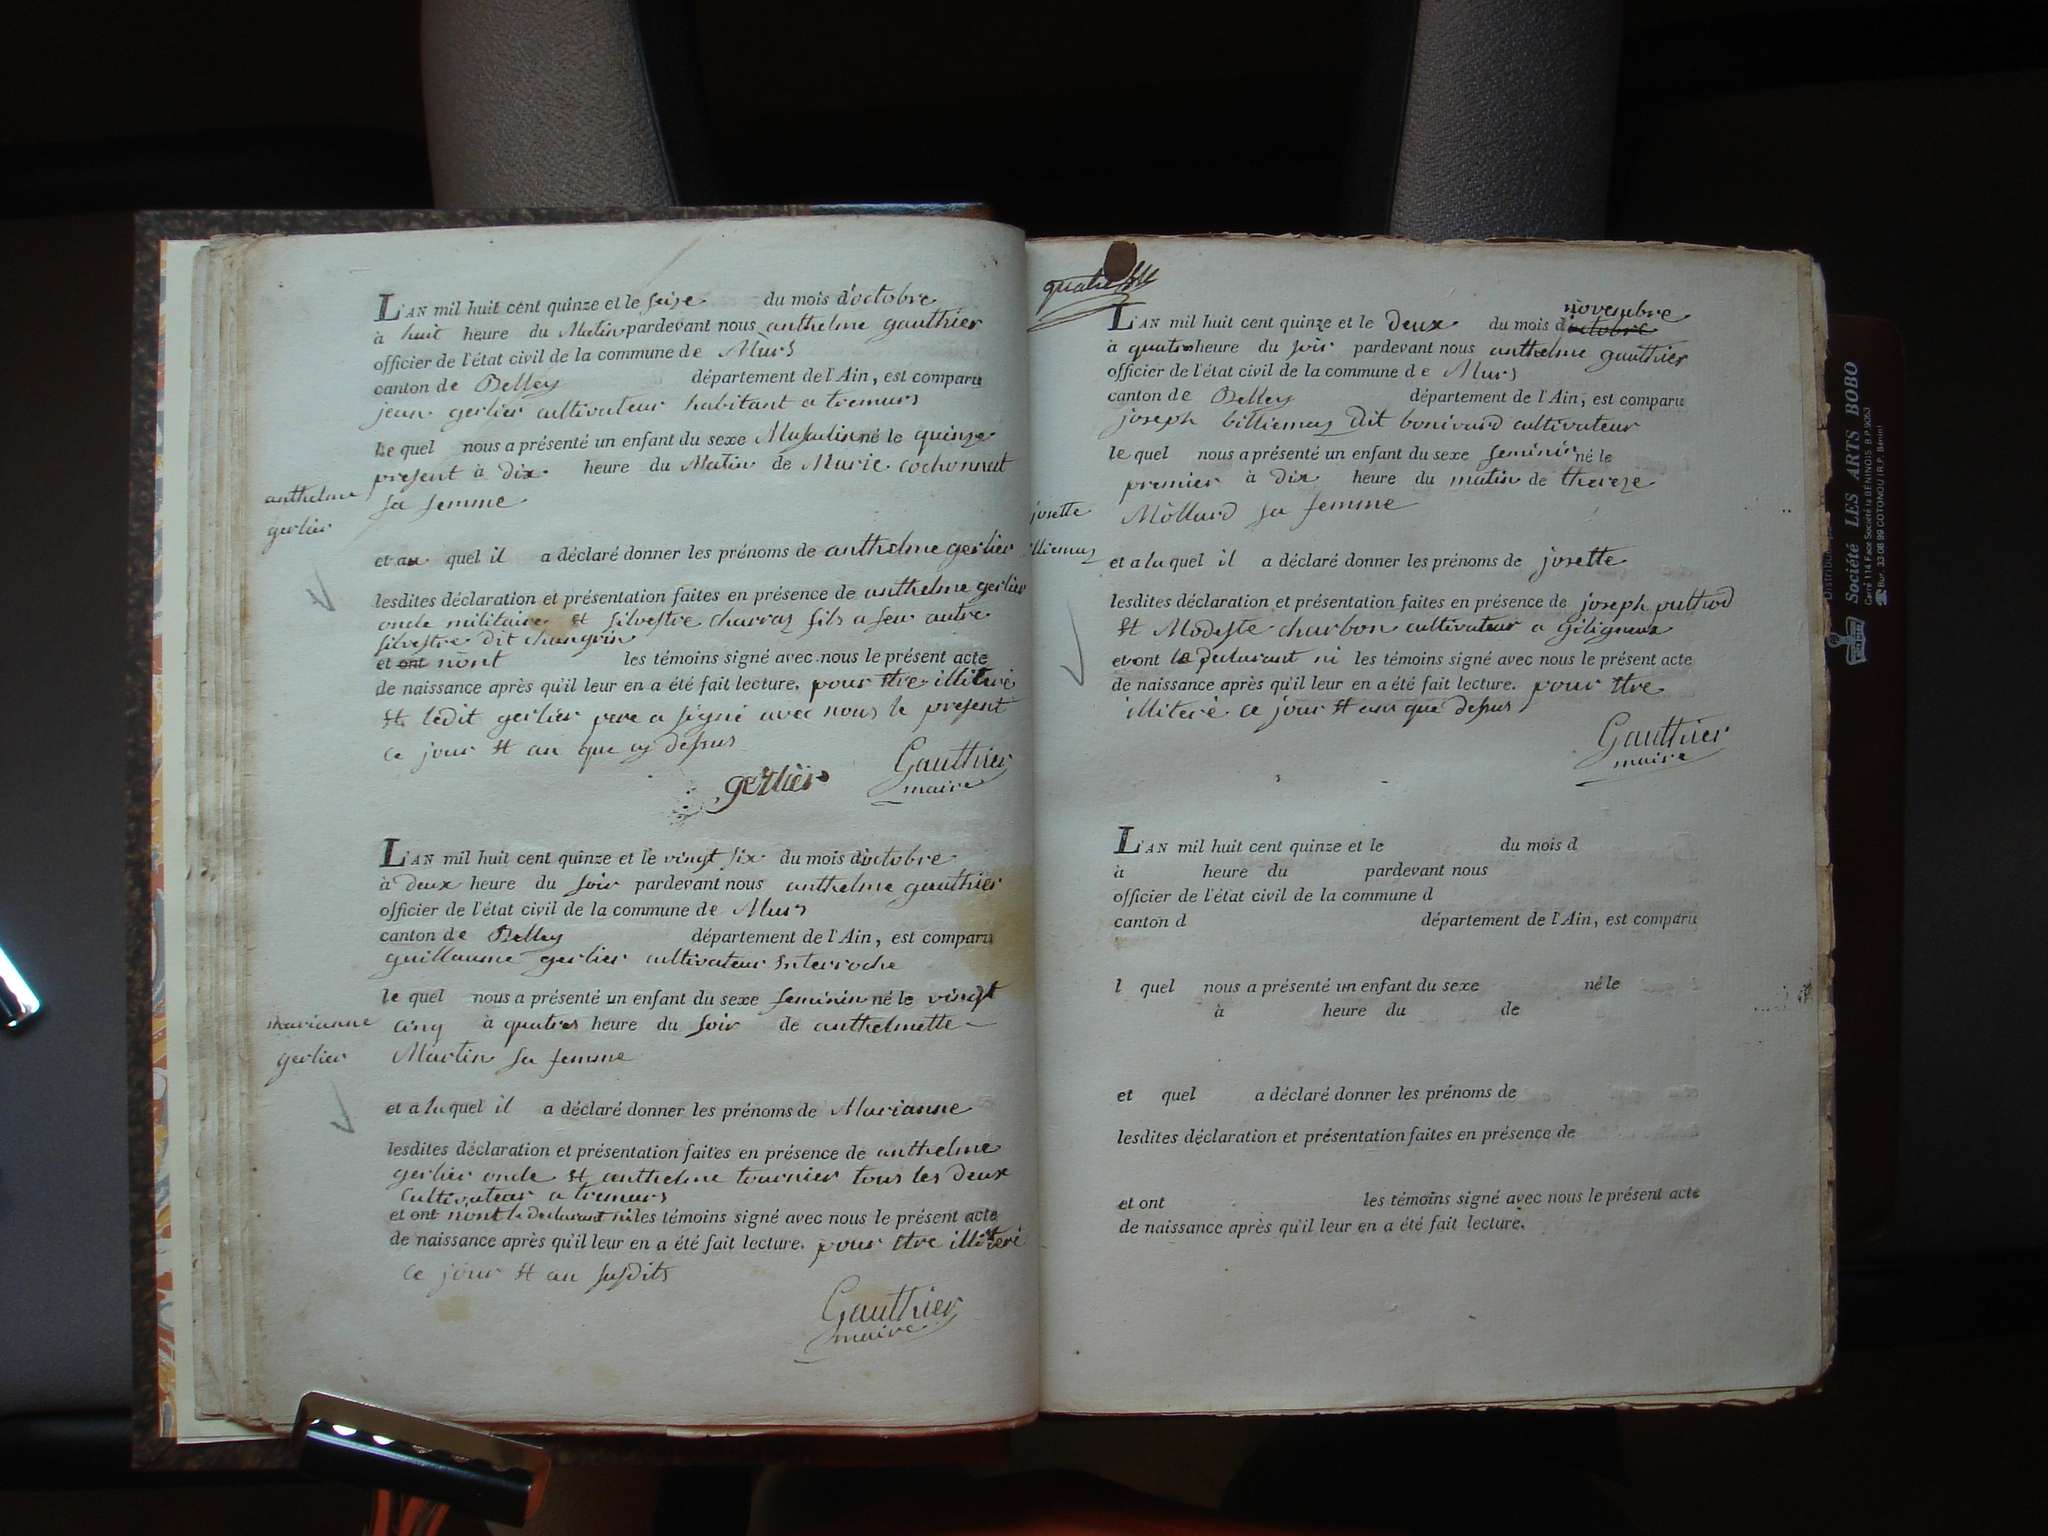 L'AN mil huit cent quinze et le seize du mois d'octobre
à huit heure du Matin pardevant nous anthelme gauthier
officier de l'état civil de la commune de Murs
canton de Belley département de l'Ain, est comparu
jean gerlier cultivateur habitant a tremurs
le quel nous a présenté un enfant du sexe Masculin né le quinze
present à dix heure du Matin de Marie cochonnat
sa femme
anthelme
gerlier
et au quel il a déclaré donner les prénoms de anthelme gerlier
lesdites déclaration et présentation faites en présence de anthelme gerlier
oncle militaire et silvestre charvaz fils a feu autre
silvestre dit changrin
et ont n'ont les témoins signé avec nous le présent acte
de naissance après qu'il leur en a été fait lecture. pour etre illiteré
et ledit gerlier pere a signé avec nous le present
ce jour et an que cy dessus
gerlier
Gauthier
maire
L'AN mil huit cent quinze et le vingt six du mois d'octobre
à deux heure du soir pardevant nous anthelme gauthier
officier de l'état civil de la commune de Murs
canton de Belley département de l'Ain, est comparu
guillaume gerlier cultivateur
le quel nous a présenté un enfant du sexe feminin né le vingt
cinq à quatres heure du soir de anthelmette
Martin sa femme
marianne
gerlier
et a la quel il a déclaré donner les prénoms de Marianne
lesdites déclaration et présentation faites en présence de anthelme
gerlier oncle et anthelme tournier tous les deux
cultivateur a tremurs
et ont n'ont le declarant ni les témoins signé avec nous le présent acte
de naissance après qu'il leur en a été fait lecture. pour etre illiteré
ce jour et an susdits
Gauthier
maire
L'AN mil huit cent quinze et le deux du mois d'octobre novembre
à quatre heure du soir pardevant nous anthelme gauthier
officier de l'état civil de la commune de Murs
canton de Belley département de l'Ain, est comparu
joseph billiemaz dit bonivard cultivateur
le quel nous a présenté un enfant du sexe feminin né le
premier à dix heure du matin de thereze
Mollard sa femme
josette
lliemaz
et a la quel il a déclaré donner les prénoms de josette
lesdites déclaration et présentation faites en présence de joseph
et Modeste charbon cultivateur a
et ont le declarant ni les témoins signé avec nous le présent acte
de naissance après qu'il leur en a été fait lecture. pour etre
illiteré ce jour et an que dessus
Gauthier
maire
L'AN mil huit cent quinze et le du mois d
à heure du pardevant nous
officier de l'état civil de la commune d
canton d département de l'Ain, est comparu
l quel nous a présenté un enfant du sexe né le
à heure du de
et quel a déclaré donner les prénoms de
lesdites déclaration et présentation faites en présence de
et ont les témoins signé avec nous le présent acte
de naissance après qu'il leur en a été fait lecture.
Société LES ARTS BOBO
Carré 114 Face Société la BÉNINOIS B.P. 9053
Bur. 33 08 99 COTONOU (R.P. Bénin)